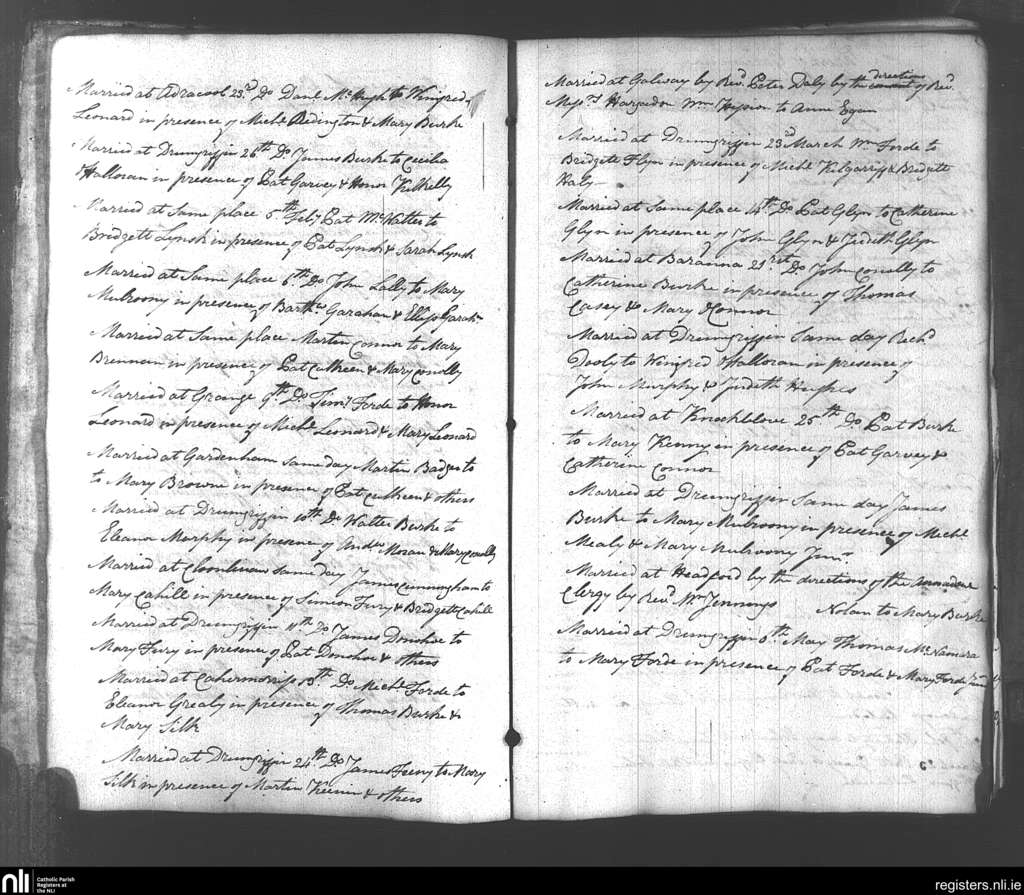 Married at Adracool 23.d Do Danl. McHugh to Winifred
Leonard in presence of Michl. Redington & Mary Burke
Married at Drumgriffin 26th Do James Burke to Cecilia
Halloran in presence of Pat Garvey & Honor Kilkelly
Married at Same place 5th Feby Pat McWalter to
Bridgett Lynsk in presence of Pat Lynsk & Sarah Lynsk
Married at Same place 6th Do John Lally to Mary
Mulroony in presence of Barthw Garahan & Garahn
Married at Same place Martin Connor to Mary
Brennan in presence of Pat Culkeen & Mary Conolly
Married at Grange 9th Do Timy Forde to Honor
Leonard in presence of Michl. Leonard & Mary Leonard
Married at Gardenham Same day Martin Badger to
to Mary Browne in presence of Pat Culkeen & others
Married at Drumgriffin 10th Do Walter Burke to
Eleanor Morphy in presence of Andw Moran & Mary Conolly
Married at Same day James Cunningham to
Mary Cahill in presence of Simeon Fury & Bridgett Cahill
Married at Drumgriffin 11th Do James Donohoe to
Mary Fury in presence of Pat Donohoe & others
Married at Cahermorriss 13th Do Michl. Forde to
Eleanor Grealy in presence of Thomas Burke &
Mary Silk
Married at Drumgriffin 24th Do James Feeny to Mary
Silk in presence of Martin & others
Married at Galway by Revd. Peter Daly by the directions of Revd.
Messrs Hargadon Wm Hession to Anne Egan
Married at Drumgriffin 23rd March Wm Forde to
Bridgett Flyn in presence of Michl Kilgarriff & Bridgett
Haly
Married at Same place 4th Do Pat Glyn to Catherine
Glyn in presence of John Glyn & Judeth Glyn
Married at Baranna 21rst Do John Conolly to
Catherine Burke in presence of Thomas
Casey & Mary OConnor
Married at Drumgriffin Same day Richd
Dooly to Winifred Halloran in presence of
John Murphy & Judeth Hughes
Married at 25th Do Pat Burke
to Mary Kenny in presence of Pat Garvey &
Catherine Connor
Married at Drumgriffin Same day James
Burke to Mary Mulroony in presence of Michl
Mealy & Mary Mulroony Junr.
Married at Headford by the directions of the Annadown
Clergy by Revd. Mr Jennings Nolan to Mary Burke
Married at Drumgriffin 6th May Thomas McNamara
to Mary Forde in presence of Pat Forde & Mary Forde Junr
nli
Catholic Parish
Registers at
the NLI
registers.nli.ie